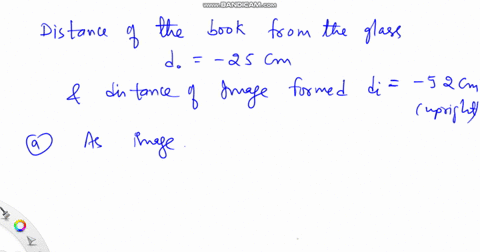 WWW.BANDICAM.COM
Distance of the book from the glass
do = -25 cm
& distance of Image formed di = -52 cm
(upright)
(a) As image